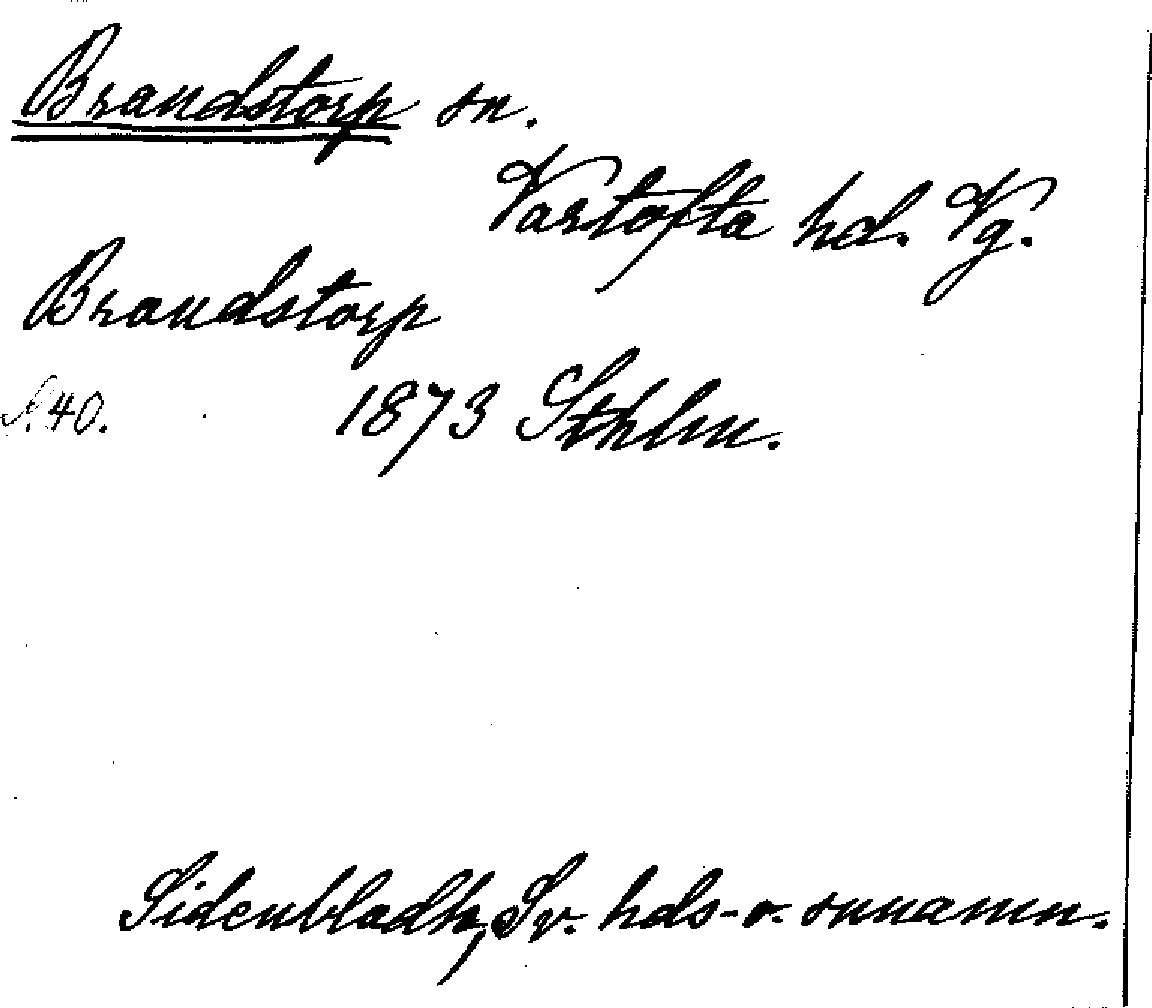 Brandstorp sn.
Vartofta hd. Vg.
Brandstorp
40. 1873 Sthlm.
Sidenbladh, Sv. hds- o. snnamn.